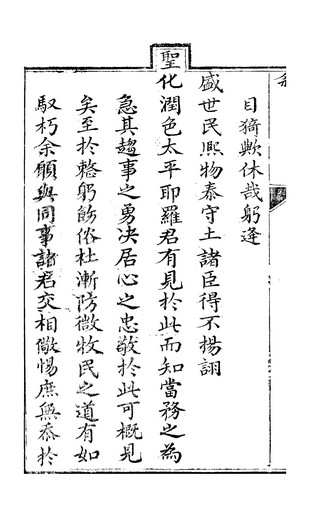 目猗歟休哉躬逢
盛世民熙物泰守土諸臣得不揚詡
聖化潤色太平耶羅君有見於此而知當務之為
急其趨事之勇决居心之忠敬於此可概見
矣至於整躬飭俗杜漸防微牧民之道有如
馭朽余願與同事諸君交相儆惕庶無忝於